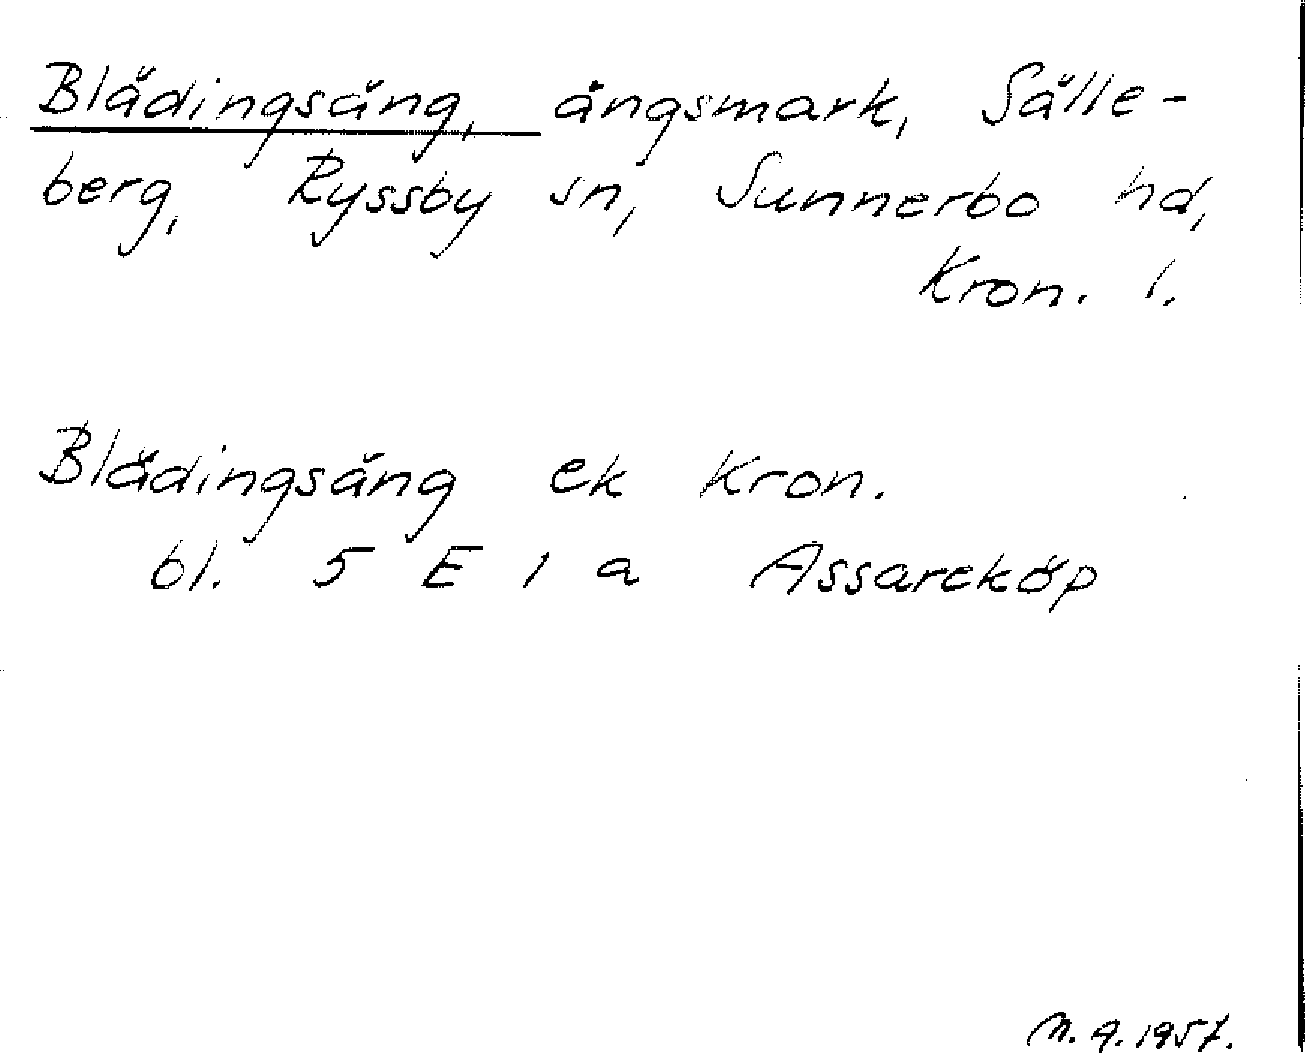 Blädingsäng, ängsmark, Sälle-
berg, Ryssby sn, Sunnerbo hd,
Kron. l.
Blädingsäng ek Kron.
bl. 5 E 1 a Assareköp
M. A. 1957.